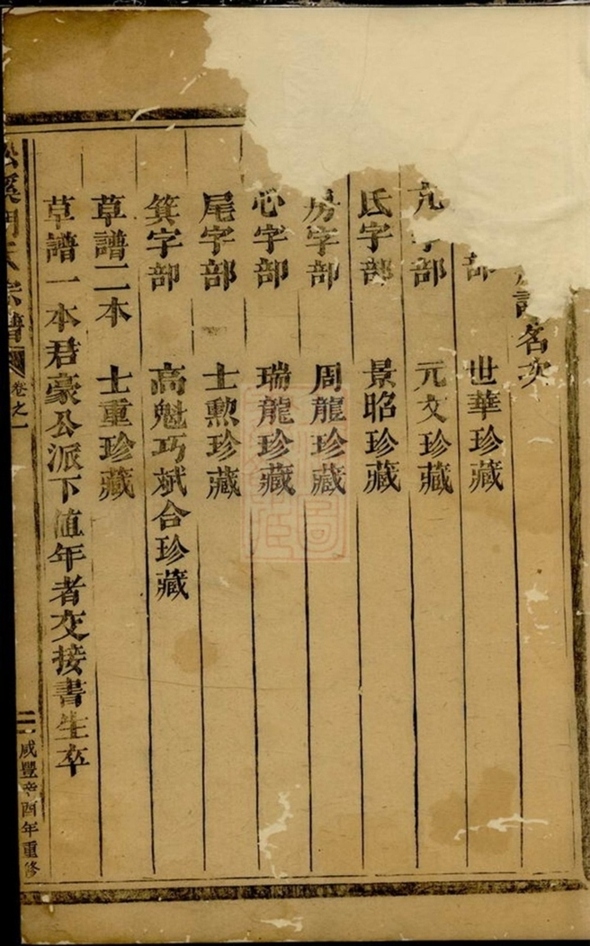 譜名次
部 世華珍藏
亢字部 元文珍藏
氐字部 景昭珍藏
房字部 周龍珍藏
心字部 瑞龍珍藏
尾字部 士勲珍藏
箕字部 高魁巧斌合珍藏
草譜二本 士重珍藏
草譜一本君豪公派下值年者交接書生卒
宗譜 卷之一 二 咸豐辛酉年重修